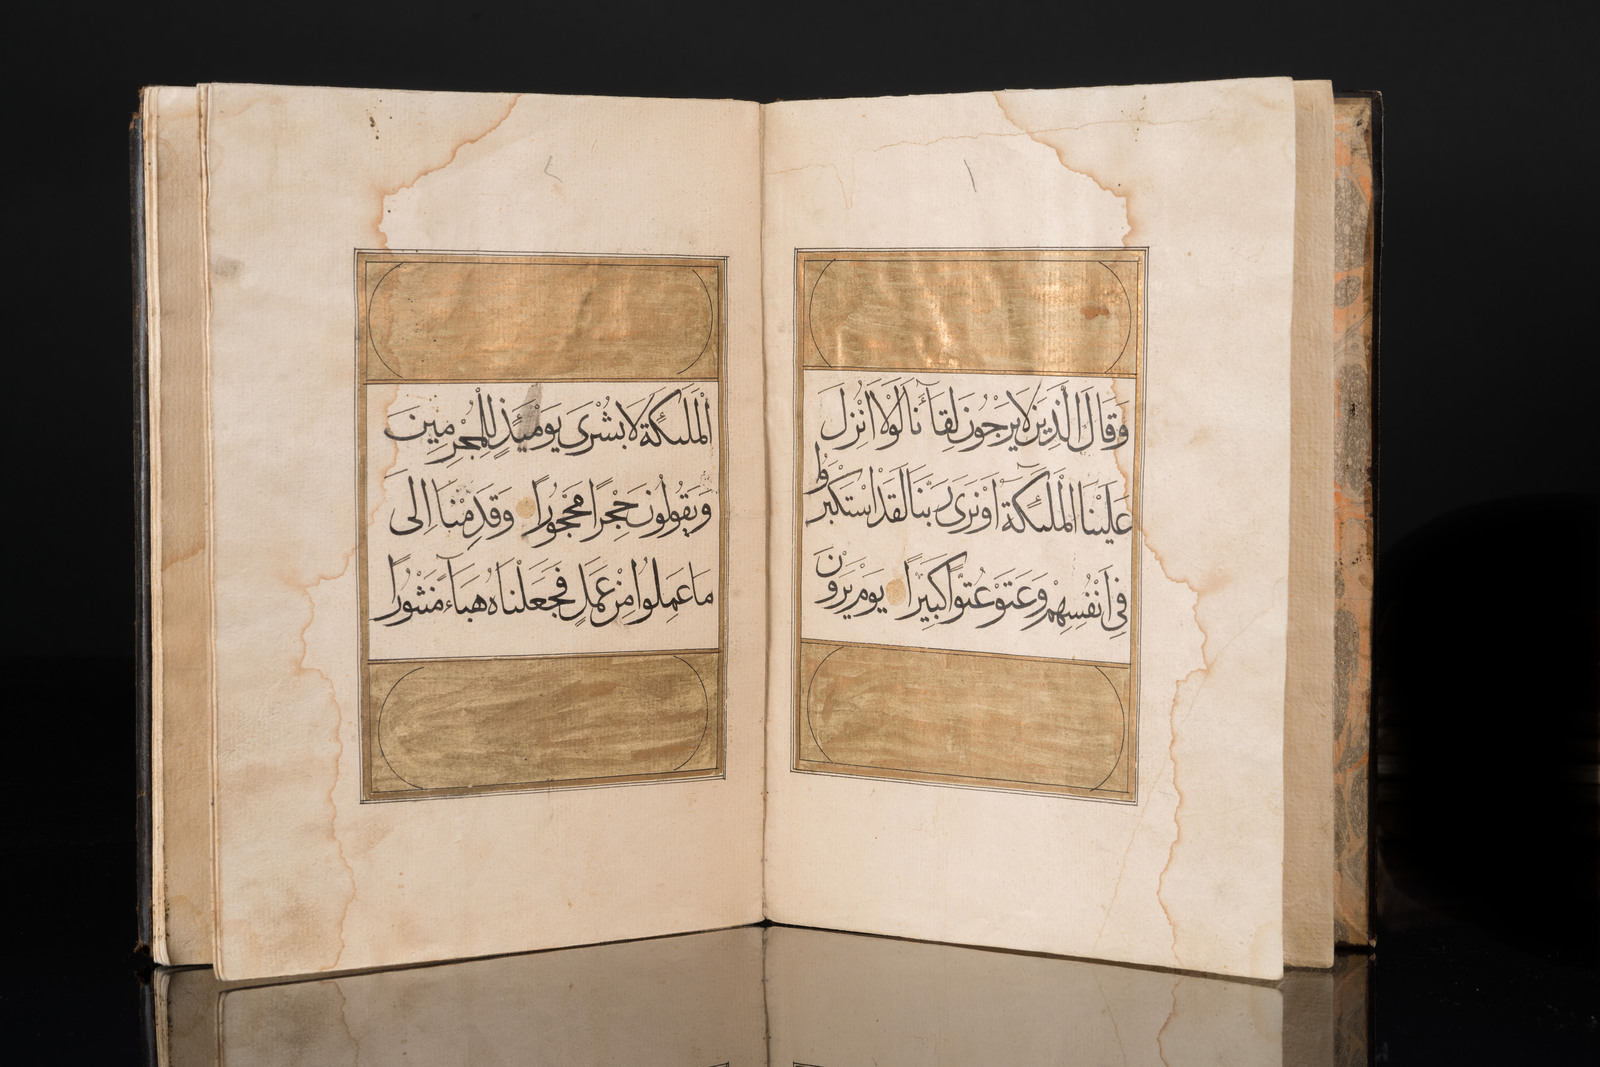 وَقَالَ الَّذِينَ لَا يَرْجُونَ لِقَآءَنَا لَوْلَا اُنْزِلَ
عَلَيْنَا الْمَلٰئِكَةُ اَوْ نَرٰى رَبَّنَا لَقَدِ اسْتَكْبَرُوا
فِى اَنْفُسِهِمْ وَعَتَوْ عُتُوًّا كَبِيرًا يَوْمَ يَرَوْنَ
الْمَلٰئِكَةَ لَا بُشْرٰى يَوْمَئِذٍ لِلْمُجْرِمِينَ
وَيَقُولُونَ حِجْرًا مَحْجُورًا وَقَدِمْنَا اِلٰى
مَا عَمِلُوا مِنْ عَمَلٍ فَجَعَلْنَاهُ هَبَآءً مَنْثُورًا